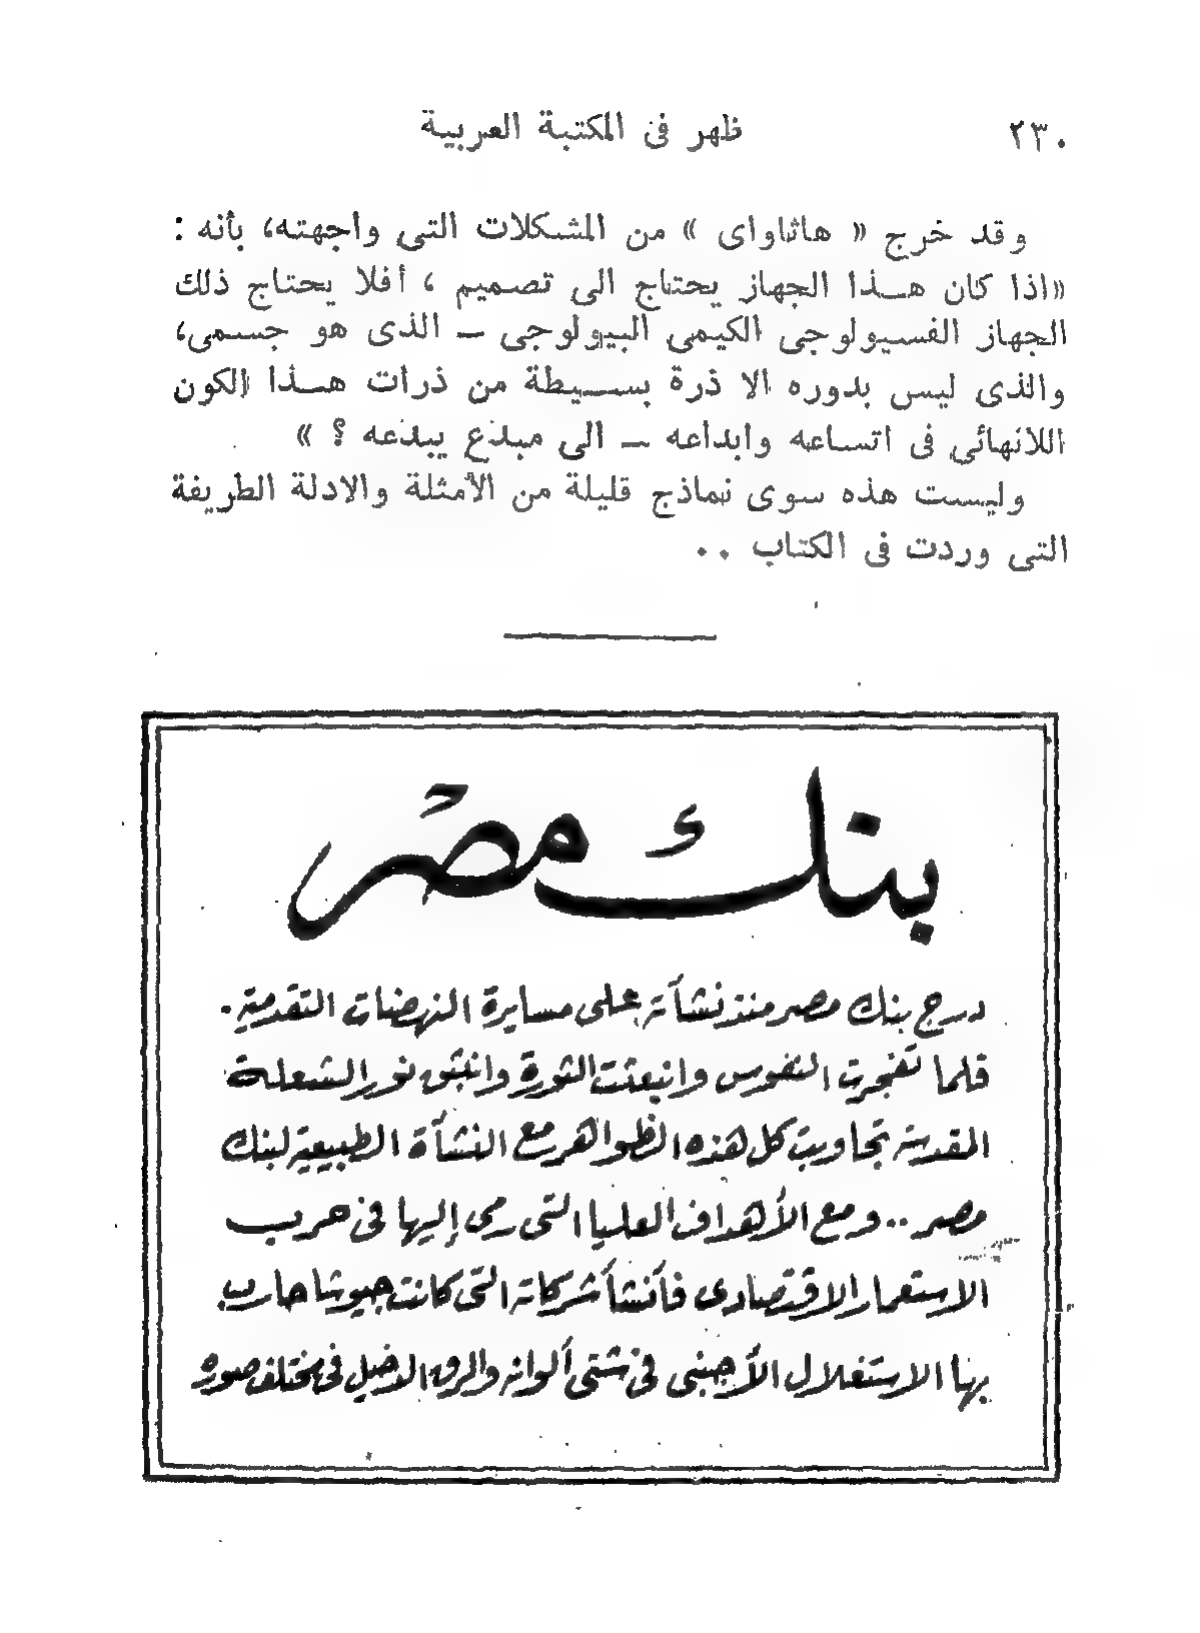 ٢٣٠
ظهر فى المكتبة العربية
وقد خرج « هاثاواى » من المشكلات التى واجهته، بأنه :
«اذا كان هــذا الجهاز يحتاج الى تصميم ، أفلا يحتاج ذلك
الجهاز الفسيولوجى الكيمى البيولوجى ــ الذى هو جسمى،
والذى ليس بدوره الا ذرة بســيطة من ذرات هــذا الكون
اللانهائى فى اتساعه وابداعه ــ الى مبدع يبدعه ؟ »
وليست هذه سوى نماذج قليلة من الأمثلة والادلة الطريفة
التى وردت فى الكتاب ..
بنك مصر
درج بنك مصر منذ نشأته على مسايرة النهضات التقدمية .
فلما تفجرت النفوس وانبعثت الثورة وانبثق نور الشعلة
المقدسة تجاوبت كل هذه الظواهر مع النشأة الطبيعية لبنك
مصر .. ومع الأهداف العليا التى رمى إليها فى حرب
الاستعمار الاقتصادى فأنشأ شركاته التى كانت جيوشا حارب
بها الاستغلال الأجنبى فى شتى ألوانه والرق الدخيل فى مختلف صوره